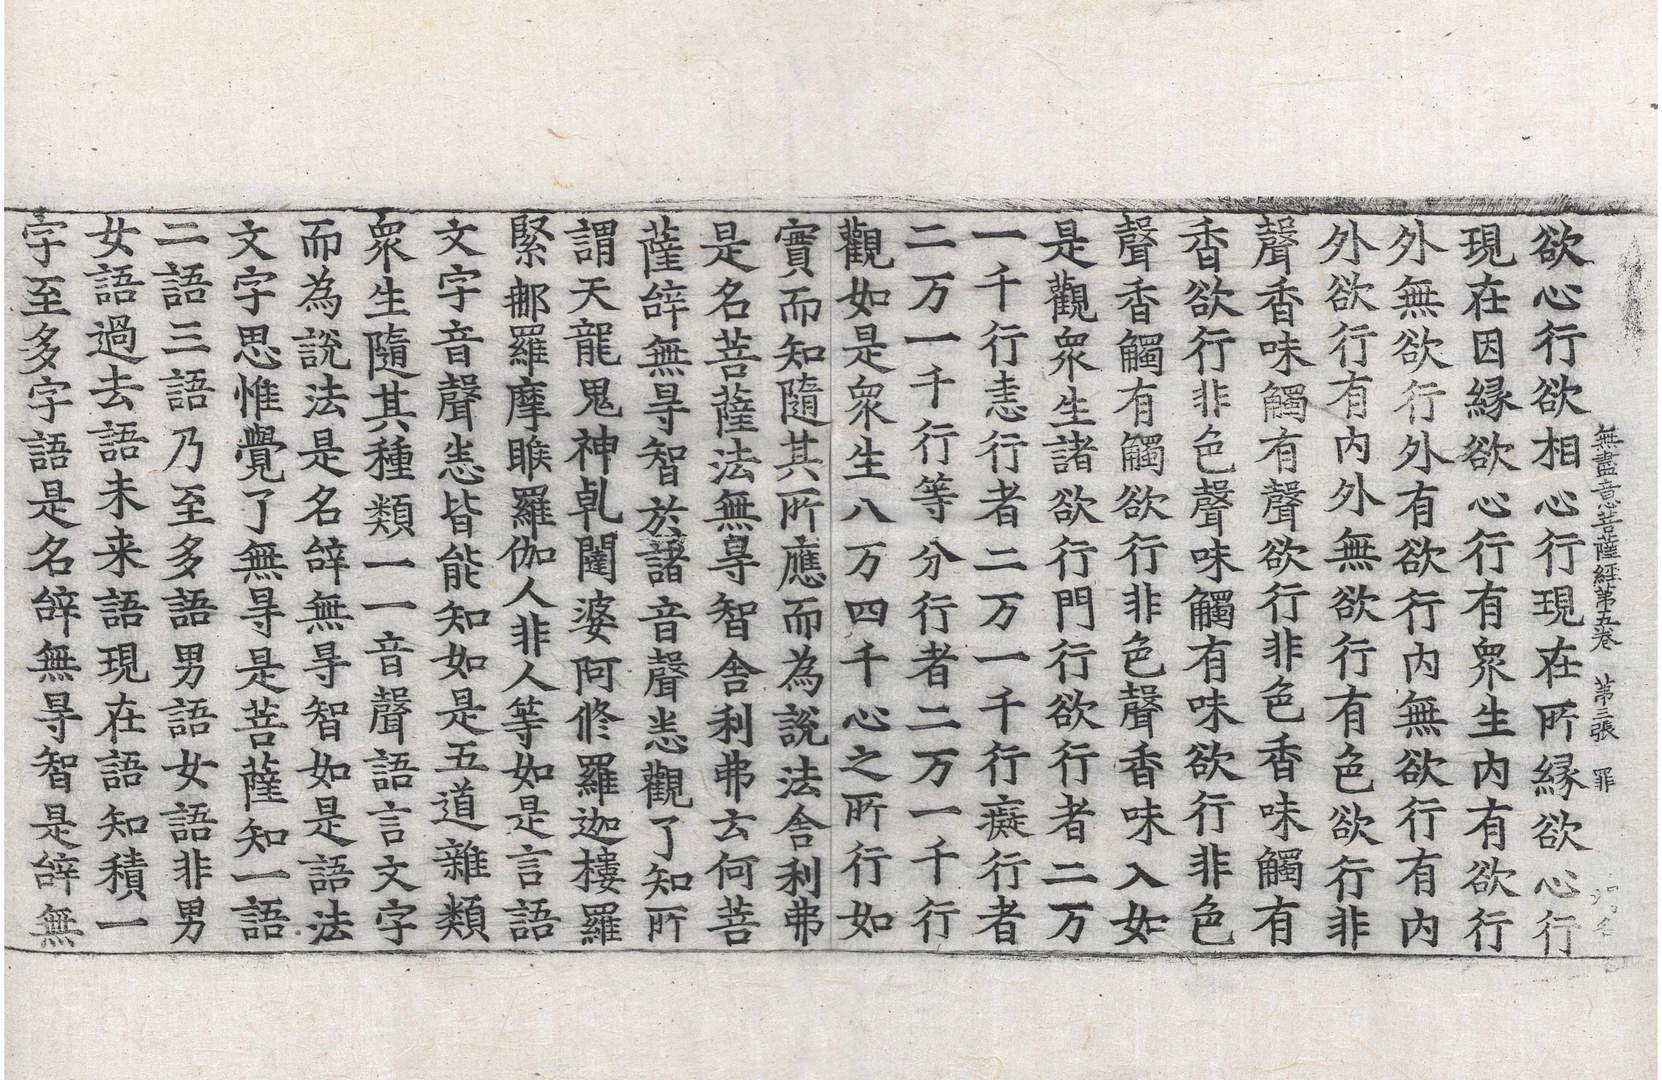 無盡意菩薩經第五卷　第三張　罪
欲心行欲相心行現在所縁欲心行
現在因縁欲心行有衆生内有欲行
外無欲行外有欲行内無欲行有内
外欲行有内外無欲行有色欲行非
聲香味觸有聲欲行非色香味觸有
香欲行非色聲味觸有味欲行非色
聲香觸有觸欲行非色聲香味入如
是觀衆生諸欲行門行欲行者二万
一千行恚行者二万一千行癡行者
二万一千行等分行者二万一千行
觀如是衆生八万四千心之所行如
實而知隨其所應而為說法舍利弗
是名菩薩法無㝵智舍利弗云何菩
薩辝無㝵智於諸音聲恚觀了知所
謂天龍鬼神乹闥婆阿修羅迦樓羅
緊那羅摩睺羅伽人非人等如是言語
文字音聲恚皆能知如是五道雜類
衆生隨其種類一一音聲語言文字
而為說法是名辝無㝵智如是語法
文字思惟覺了無㝵是菩薩知一語
二語三語乃至多語男語女語非男
女語過去語未来語現在語知積一
字至多字語是名辝無㝵智是辝無